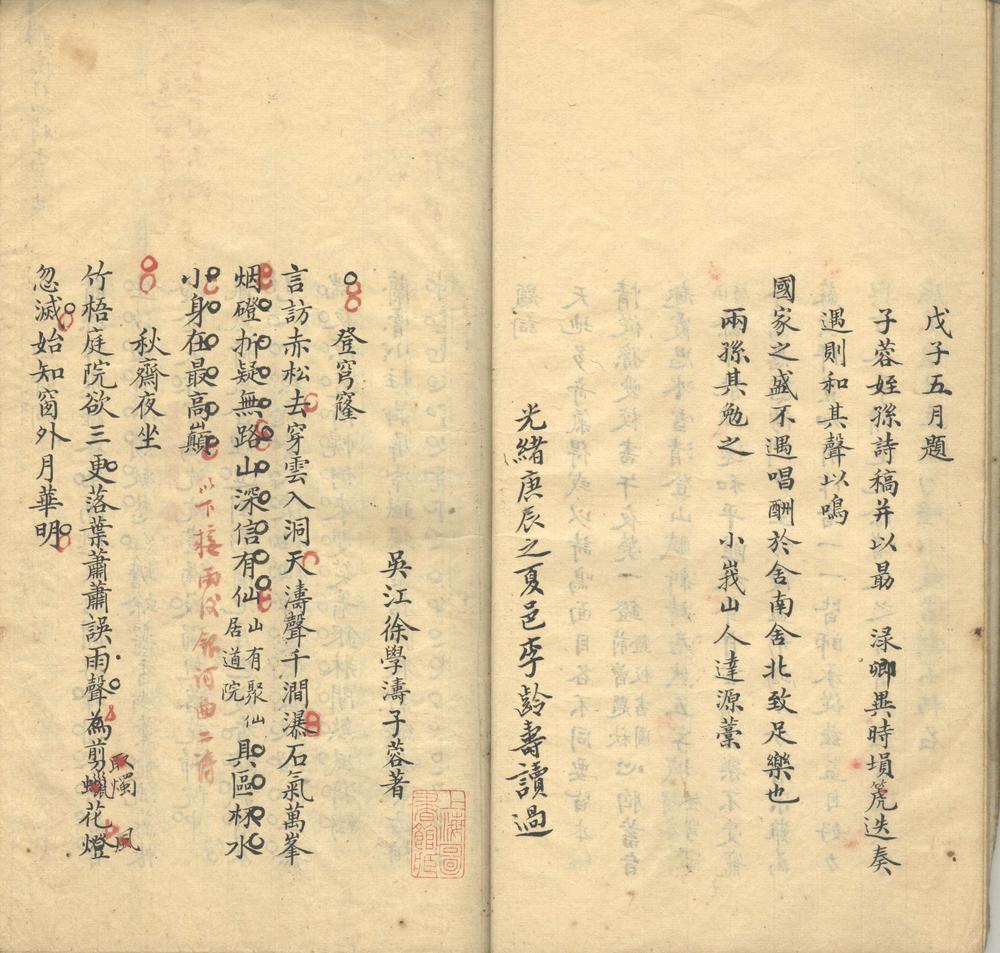 戊子五月題
子蓉姪孫詩稿并以勗之渌卿異時塤箎迭奏
遇則和其聲以鳴
國家之盛不遇唱酬於舍南舍北致足樂也
兩孫其勉之
小峩山人達源藁
光緒庚辰之夏邑李齡壽讀過
吳江徐學濤子蓉著
登穹窿
言訪赤松去穿雲入洞天濤聲千澗瀑石氣萬峯
烟磴折疑無路山深信有仙山有聚仙居道院具區杯水
小身在最高巔
以下接雨後
秋齋夜坐
竹梧庭院欲三更落葉蕭蕭誤雨聲為剪蠟花燈
取燭
風
忽滅始知窗外月華明
上海圖書館藏